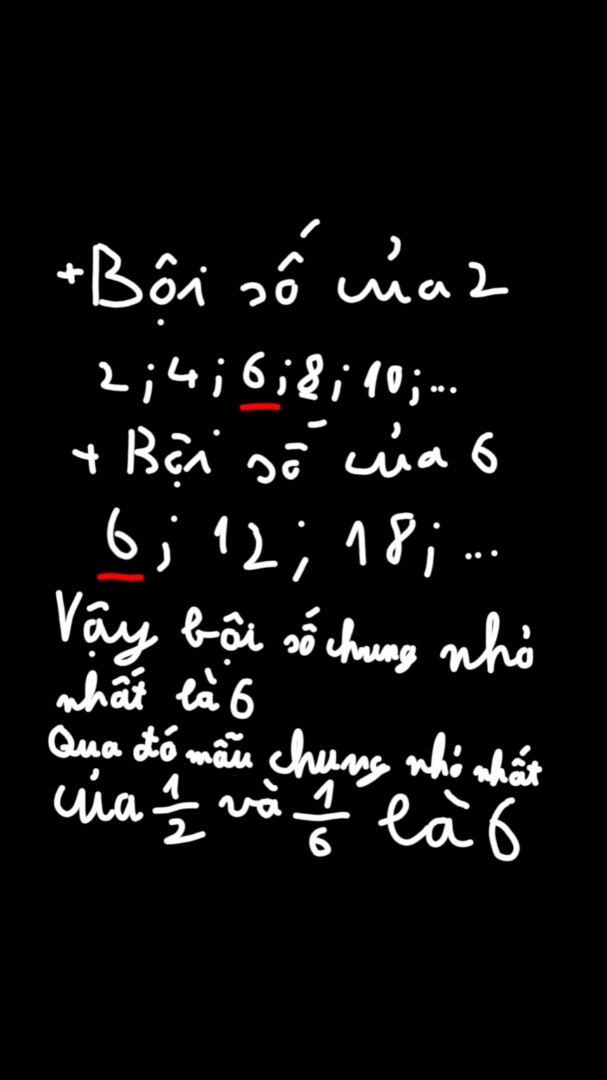 + Bội số của 2
2; 4; 6; 8; 10; ...
+ Bội số của 6
6; 12; 18; ...
Vậy bội số chung nhỏ
nhất là 6
Qua đó mẫu chung nhỏ nhất
của 1/2 và 1/6 là 6